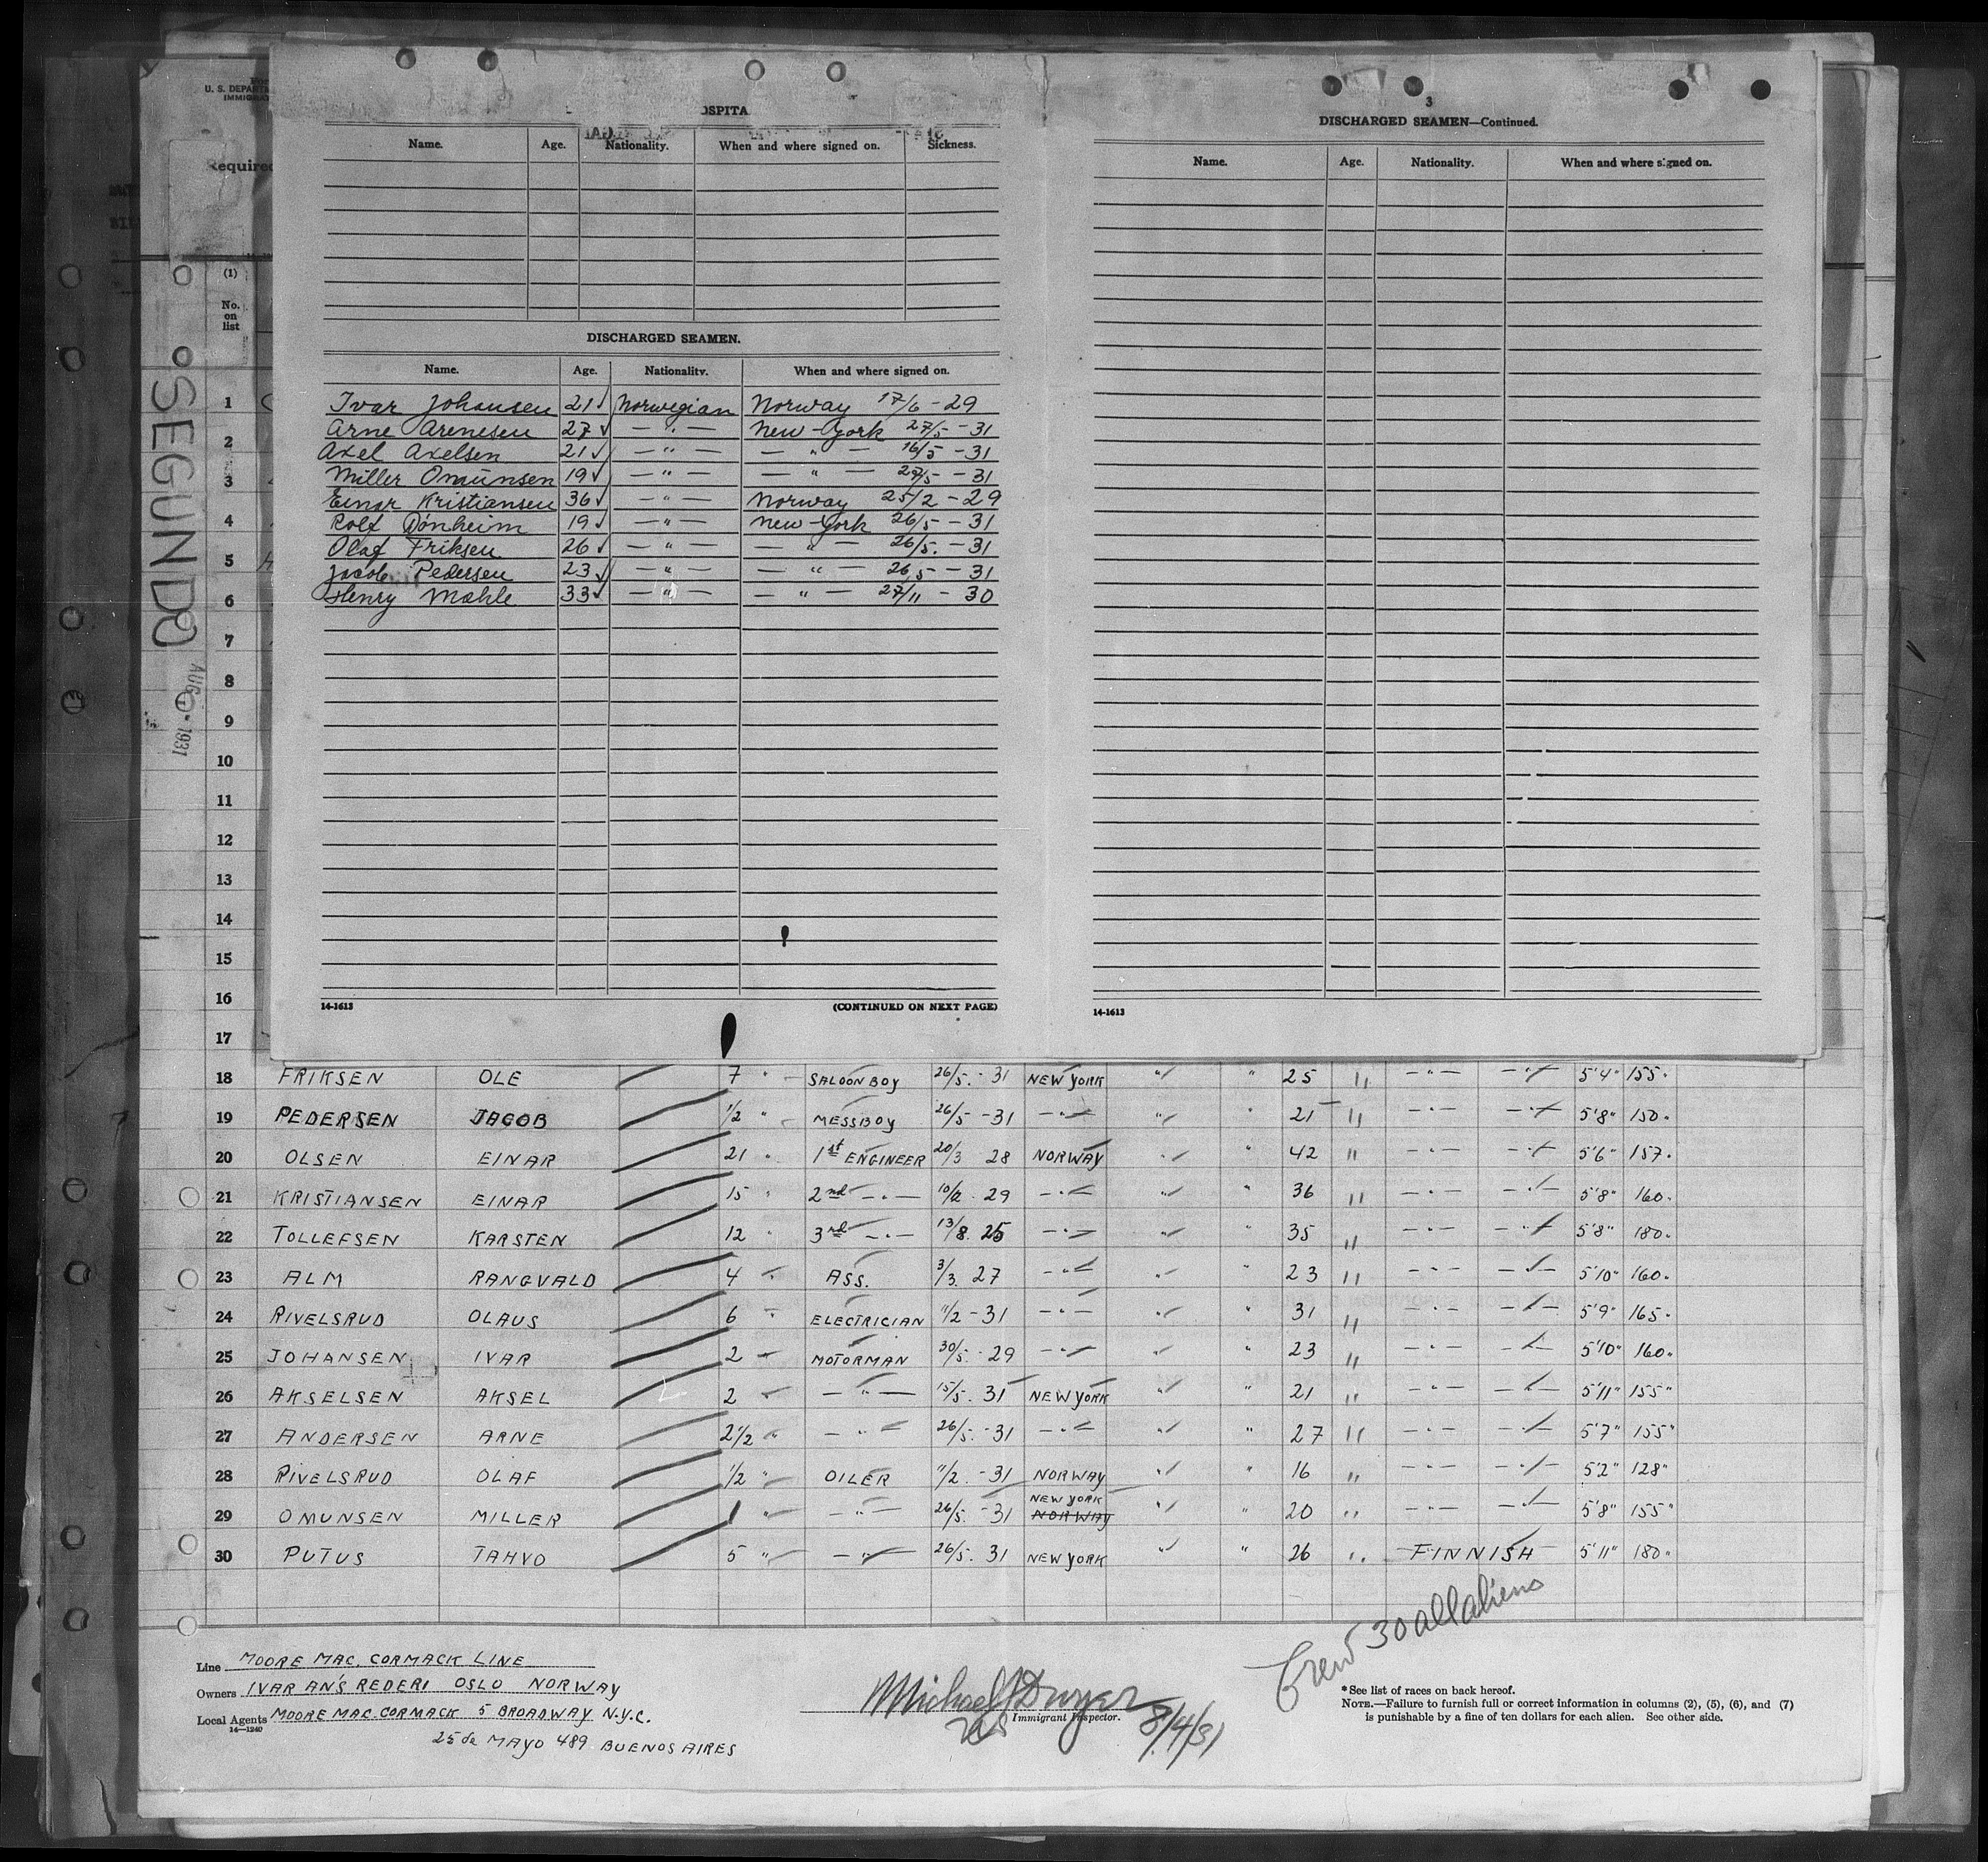 U. S. DEPART
IMMIGRA
Required
OSPITA
Name. Age. Nationality. When and where signed on. Sickness.
DISCHARGED SEAMEN.
Name. Age. Nationality. When and where signed on.
Ivar Johansen 21 Norwegian Norway 17/6 - 29
Arne Arenesen 27 — " — New-York 27/5 - 31
Axel Axelsen 21 — " — — " — 16/5 - 31
Miller Omunsen 19 — " — — " — 27/5 - 31
Einar Kristiansen 36 — " — Norway 25/2 - 29
Rolf Donheim 19 — " — New-York 26/5 - 31
Olaf Friksen 26 — " — — " — 26/5. - 31
Jacob Pedersen 23 — " — — " — 26/5 - 31
Henry Mæhle 33 — " — — " — 27/11 - 30
14-1613 (CONTINUED ON NEXT PAGE)
3
DISCHARGED SEAMEN—Continued.
Name. Age. Nationality. When and where signed on.
14-1613
SEGUNDO
AUG 1 - 1931
(1)
No. on list
1
2
3
4
5
6
7
8
9
10
11
12
13
14
15
16
17
18 FRIKSEN OLE 7 " SALOONBOY 26/5. - 31 NEW YORK " " 25 " — " — — " — 5'4" 155"
19 PEDERSEN JACOB 1/2 " MESSBOY 26/5 - 31 — " — " " 21 " — " — — " — 5'8" 150"
20 OLSEN EINAR 21 " 1st ENGINEER 20/3 28 NORWAY " " 42 " — " — — " — 5'6" 157"
21 KRISTIANSEN EINAR 15 " 2nd — " — 10/2 - 29 — " — " " 36 " — " — — " — 5'8" 160"
22 TOLLEFSEN KARSTEN 12 " 3rd — " — 13/8. 25 — " — " " 35 " — " — — " — 5'8" 180"
23 ALM RANGVALD 4 " ASS. 3/3. 27 — " — " " 23 " — " — — " — 5'10" 160"
24 RIVELSRUD OLAUS 6 " ELECTRICIAN 11/2 - 31 — " — " " 31 " — " — — " — 5'9" 165"
25 JOHANSEN IVAR 2 " MOTORMAN 30/5. - 29 — " — " " 23 " — " — — " — 5'10" 160"
26 AKSELSEN AKSEL 2 " — " — 15/5. 31 NEW YORK " " 21 " — " — — " — 5'11" 155"
27 ANDERSEN ARNE 2 1/2 " — " — 26/5. - 31 — " — " " 27 " — " — — " — 5'7" 155"
28 RIVELSRUD OLAF 1/2 " OILER 11/2. - 31 NORWAY " " 16 " — " — — " — 5'2" 128"
29 OMUNSEN MILLER 1 " — " — 26/5. - 31 NEW YORK NORWAY " " 20 " — " — — " — 5'8" 155"
30 PUTUS TAHVO 5 " — " — 26/5. 31 NEW YORK " " 26 " FINNISH 5'11" 180"
Crew 30 all aliens
Line MOORE MAC. CORMACK LINE
Owners IVAR AN'S REDERI OSLO NORWAY
Local Agents MOORE MAC. CORMACK 5 BROADWAY N.Y.C.
14-1240
25 de MAYO 489 BUENOS AIRES
Michael J Dwyer
Immigrant Inspector.
8/4/31
* See list of races on back hereof.
NOTE.—Failure to furnish full or correct information in columns (2), (5), (6), and (7)
is punishable by a fine of ten dollars for each alien. See other side.